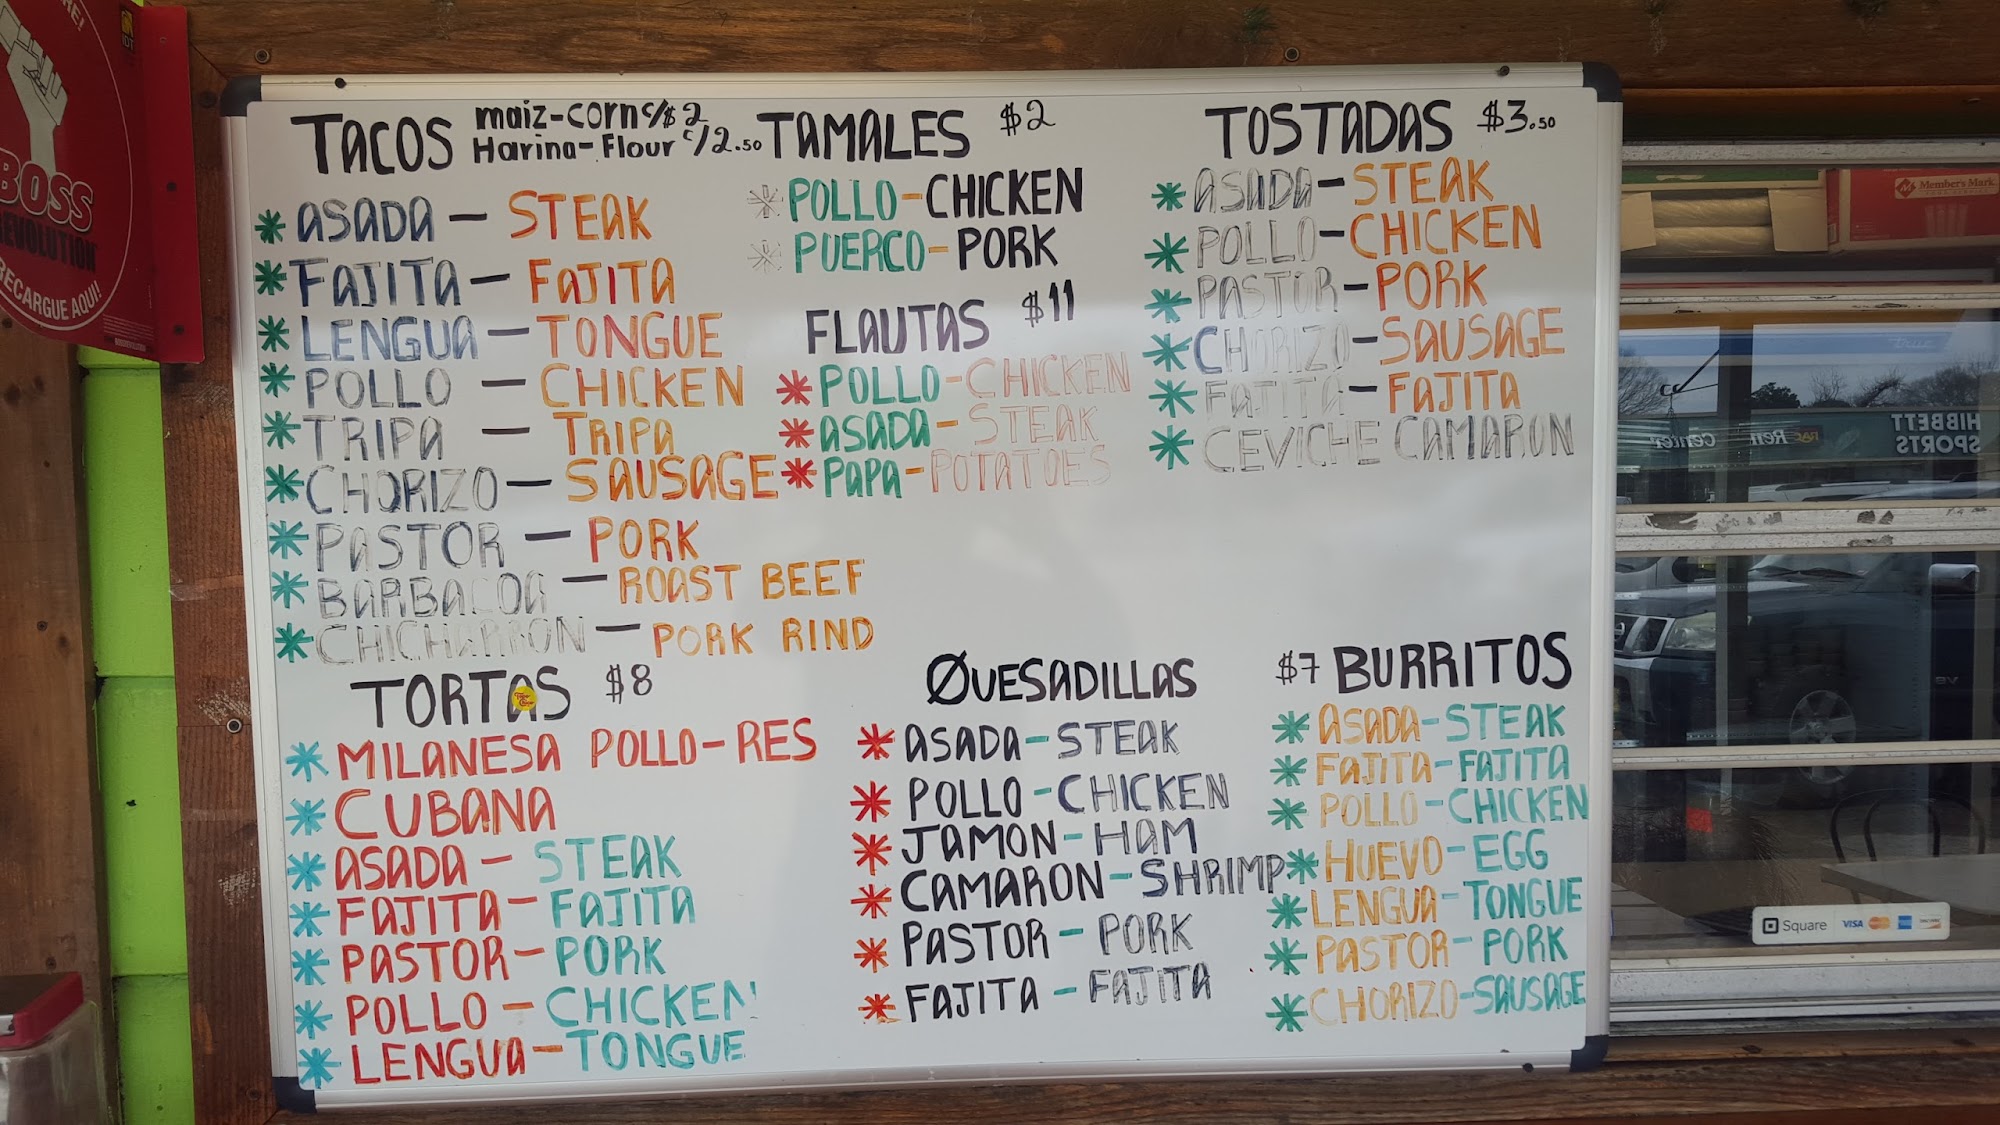 TACOS
maiz-corn c/$2
Harina-Flour c/2.50
* ASADA - STEAK
* FAJITA - FAJITA
* LENGUA - TONGUE
* POLLO - CHICKEN
* TRIPA - TRIPA
* CHORIZO - SAUSAGE
* PASTOR - PORK
* BARBACOA - ROAST BEEF
* CHICHARRON - PORK RIND
TAMALES $2
* POLLO-CHICKEN
* PUERCO-PORK
FLAUTAS $11
* POLLO-CHICKEN
* ASADA-STEAK
* PAPA-POTATOES
TOSTADAS $3.50
* ASADA-STEAK
* POLLO-CHICKEN
* PASTOR-PORK
* CHORIZO-SAUSAGE
* FAJITA-FAJITA
* CEVICHE CAMARON
TORTAS $8
* MILANESA POLLO-RES
* CUBANA
* ASADA - STEAK
* FAJITA - FAJITA
* PASTOR - PORK
* POLLO - CHICKEN
* LENGUA - TONGUE
QUESADILLAS
* ASADA-STEAK
* POLLO-CHICKEN
* JAMON-HAM
* CAMARON-SHRIMP
* PASTOR-PORK
* FAJITA-FAJITA
$7 BURRITOS
* ASADA-STEAK
* FAJITA-FAJITA
* POLLO-CHICKEN
* HUEVO-EGG
* LENGUA-TONGUE
* PASTOR-PORK
* CHORIZO-SAUSAGE
BOSS
REVOLUTION
RECARGUE AQUI!
IDT
Member's Mark
HIBBETT
SPORTS
Rent
Center
Square VISA